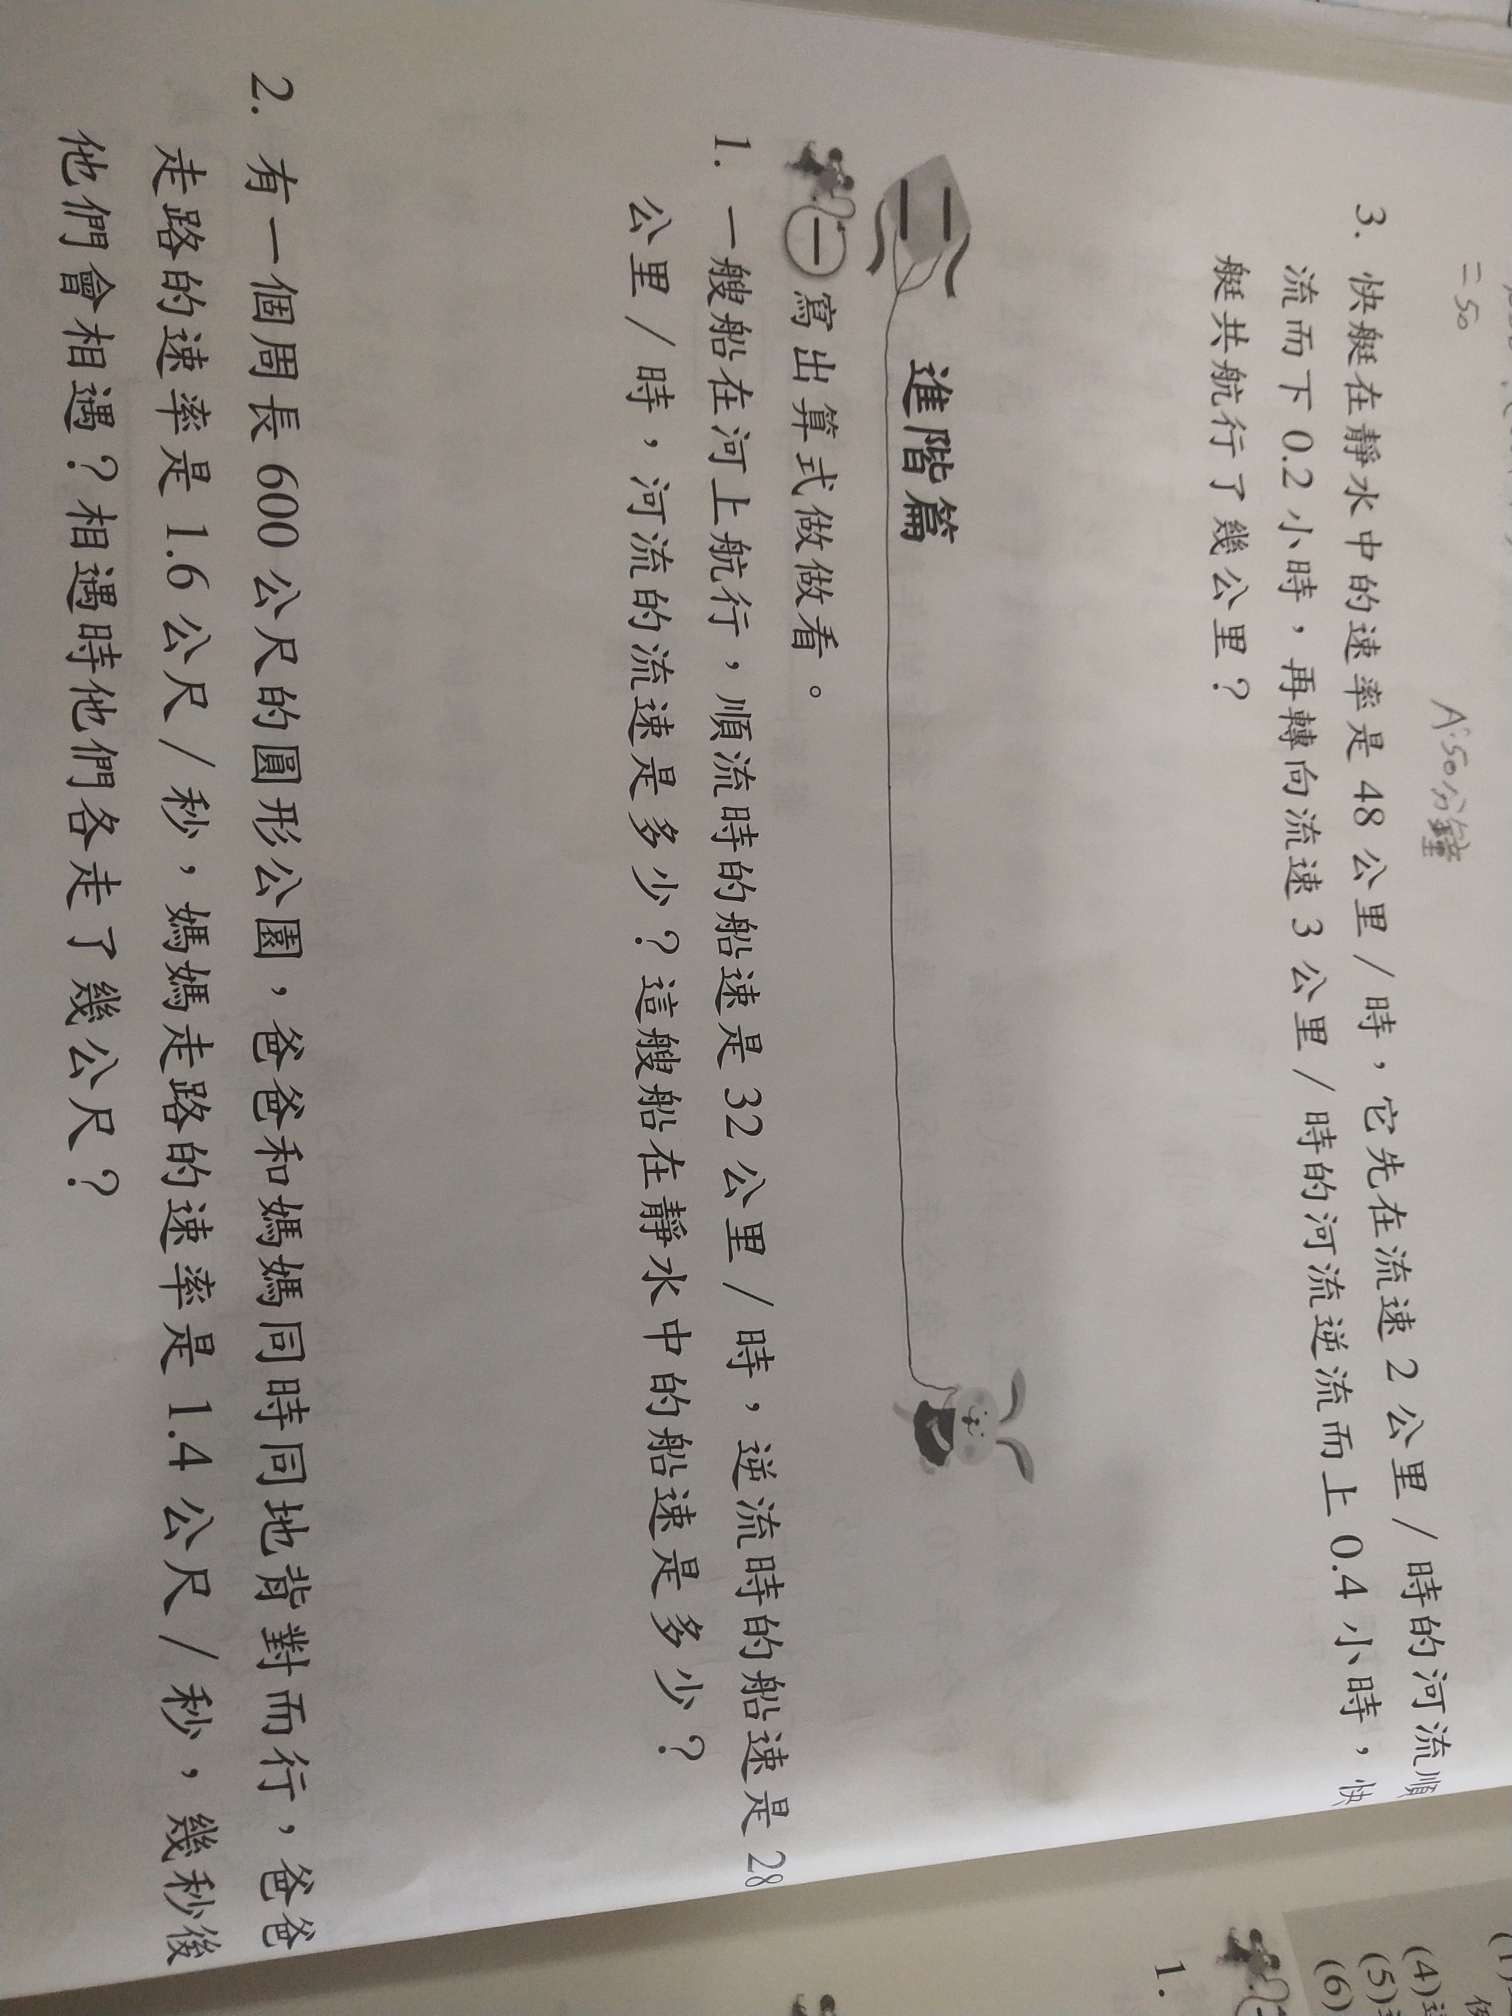 = 50
A:50分鐘
3. 快艇在靜水中的速率是 48 公里/時，它先在流速 2 公里/時的河流順
流而下 0.2 小時，再轉向流速 3 公里/時的河流逆流而上 0.4 小時，快
艇共航行了幾公里？
二 進階篇
一 寫出算式做做看。
1. 一艘船在河上航行，順流時的船速是 32 公里/時，逆流時的船速是 28
公里/時，河流的流速是多少？這艘船在靜水中的船速是多少？
2. 有一個周長 600 公尺的圓形公園，爸爸和媽媽同時同地背對而行，爸爸
走路的速率是 1.6 公尺/秒，媽媽走路的速率是 1.4 公尺/秒，幾秒後
他們會相遇？相遇時他們各走了幾公尺？
(4)
(5)
(6)
1.